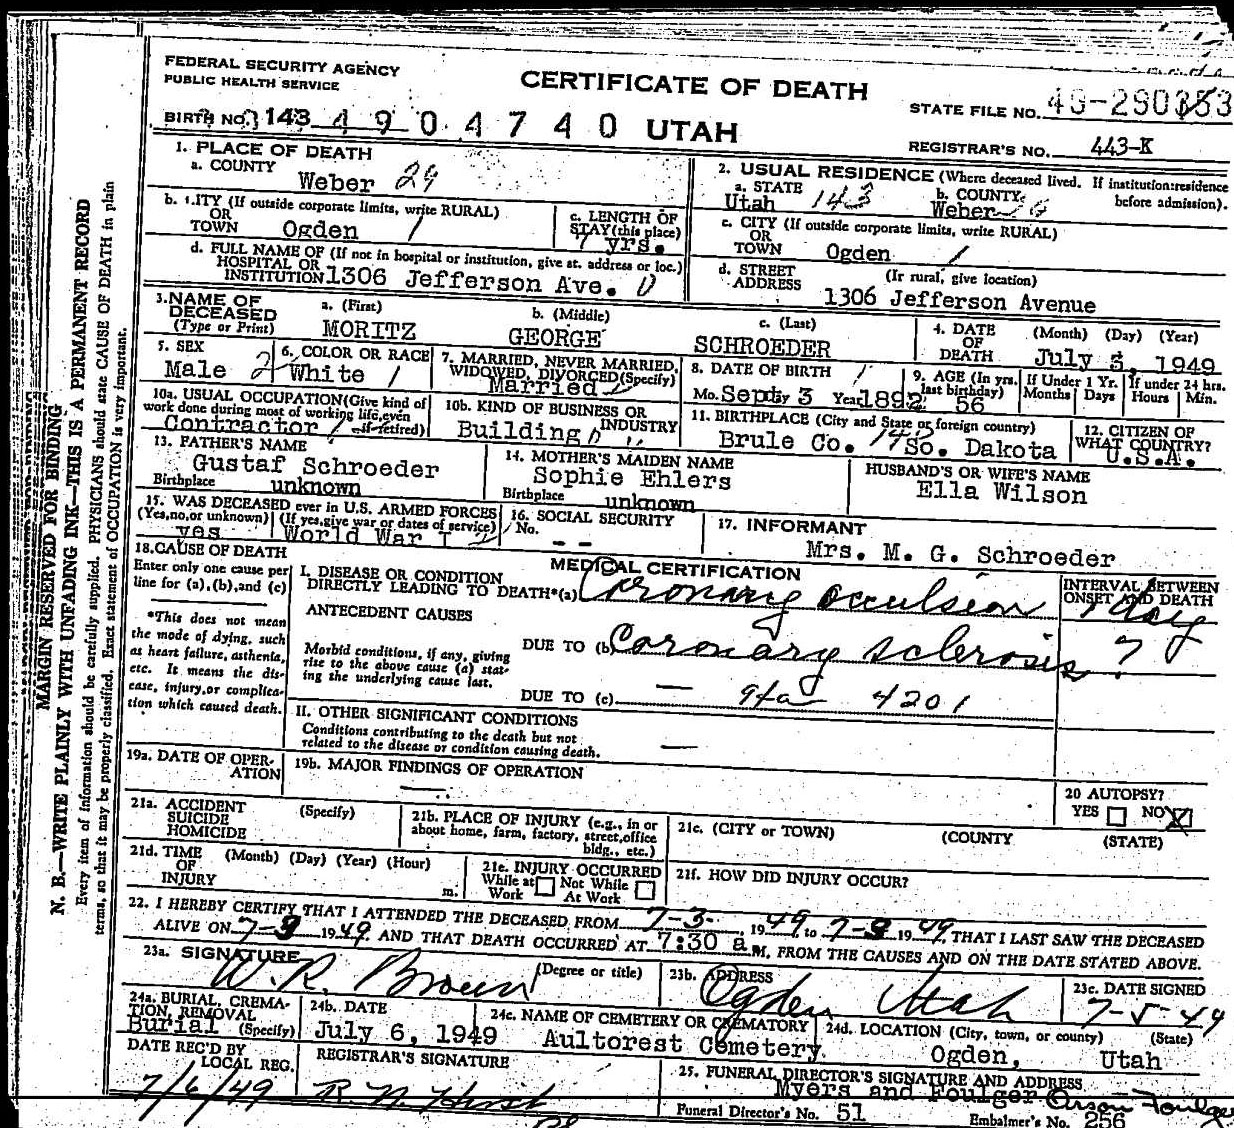 FEDERAL SECURITY AGENCY
PUBLIC HEALTH SERVICE
CERTIFICATE OF DEATH
STATE FILE NO.
BIRTH NO. 143 4904740 UTAH
REGISTRAR'S NO. 443-K
1. PLACE OF DEATH
a. COUNTY
Weber 29
2. USUAL RESIDENCE (Where deceased lived. If institution: residence before admission).
a. STATE Utah 143 b. COUNTY Weber
b. CITY (If outside corporate limits, write RURAL)
OR
TOWN Ogden 1
c. LENGTH OF STAY (this place)
7 yrs.
c. CITY (If outside corporate limits, write RURAL)
OR
TOWN Ogden 1
d. FULL NAME OF (If not in hospital or institution, give st. address or loc.)
HOSPITAL OR
INSTITUTION 1306 Jefferson Ave. 0
d. STREET ADDRESS (Ir rural, give location)
1306 Jefferson Avenue
3. NAME OF DECEASED (Type or Print)
a. (First) MORITZ
b. (Middle) GEORGE
c. (Last) SCHROEDER
4. DATE OF DEATH (Month) (Day) (Year)
July 3, 1949
5. SEX
Male 2
6. COLOR OR RACE
White 1
7. MARRIED, NEVER MARRIED, WIDOWED, DIVORCED (Specify)
Married
8. DATE OF BIRTH
Mo. Sept Dy 3 Year 1892
9. AGE (In yrs. last birthday)
56
If Under 1 Yr. Months Days
If under 24 hrs. Hours Min.
10a. USUAL OCCUPATION (Give kind of work done during most of working life, even if retired)
Contractor
10b. KIND OF BUSINESS OR INDUSTRY
Building
11. BIRTHPLACE (City and State or foreign country)
Brule Co. So. Dakota
12. CITIZEN OF WHAT COUNTRY?
U.S.A.
13. FATHER'S NAME
Gustaf Schroeder
Birthplace unknown
14. MOTHER'S MAIDEN NAME
Sophie Ehlers
Birthplace unknown
HUSBAND'S OR WIFE'S NAME
Ella Wilson
15. WAS DECEASED ever in U.S. ARMED FORCES
(Yes, no, or unknown) (If yes, give war or dates of service)
yes World War I
16. SOCIAL SECURITY
No. --
17. INFORMANT
Mrs. M. G. Schroeder
18. CAUSE OF DEATH
Enter only one cause per line for (a), (b), and (c)
*This does not mean
the mode of dying, such
as heart failure, asthenia,
etc. It means the dis-
ease, injury, or complica-
tion which caused death.
MEDICAL CERTIFICATION
INTERVAL BETWEEN ONSET AND DEATH
I. DISEASE OR CONDITION
DIRECTLY LEADING TO DEATH*(a) Coronary occulsion 1 day
ANTECEDENT CAUSES
Morbid conditions, if any, giving
rise to the above cause (a) stat-
ing the underlying cause last.
DUE TO (b) Coronary sclerosis ?
DUE TO (c) — 94a 4201
II. OTHER SIGNIFICANT CONDITIONS
Conditions contributing to the death but not
related to the disease or condition causing death. —
19a. DATE OF OPER-
ATION
19b. MAJOR FINDINGS OF OPERATION
—
20 AUTOPSY?
YES NO X
21a. ACCIDENT (Specify)
SUICIDE
HOMICIDE
21b. PLACE OF INJURY (e.g., in or about home, farm, factory, street, office bldg., etc.)
21c. (CITY or TOWN) (COUNTY) (STATE)
21d. TIME (Month) (Day) (Year) (Hour)
OF
INJURY m.
21e. INJURY OCCURRED
While at Work Not While At Work
21f. HOW DID INJURY OCCUR?
22. I HEREBY CERTIFY THAT I ATTENDED THE DECEASED FROM 7-3- 1949, to 7-3 1949, THAT I LAST SAW THE DECEASED
ALIVE ON 7-3 1949, AND THAT DEATH OCCURRED AT 7:30 a.M, FROM THE CAUSES AND ON THE DATE STATED ABOVE.
23a. SIGNATURE (Degree or title)
W. R. Brown
23b. ADDRESS
Ogden Utah
23c. DATE SIGNED
7-5-49
24a. BURIAL, CREMA-
TION, REMOVAL
Burial (Specify)
24b. DATE
July 6, 1949
24c. NAME OF CEMETERY OR CREMATORY
Aultorest Cemetery
24d. LOCATION (City, town, or county) (State)
Ogden, Utah
DATE REC'D BY LOCAL REG.
7/6/49
REGISTRAR'S SIGNATURE
25. FUNERAL DIRECTOR'S SIGNATURE AND ADDRESS
Myers and Foulger Orson Foulger
Funeral Director's No. 51 Embalmer's No. 256
MARGIN RESERVED FOR BINDING
N. B.—WRITE PLAINLY WITH UNFADING INK—THIS IS A PERMANENT RECORD
Every item of information should be carefully supplied. PHYSICIANS should state CAUSE OF DEATH in plain
terms, so that it may be properly classified. Exact statement of OCCUPATION is very important.